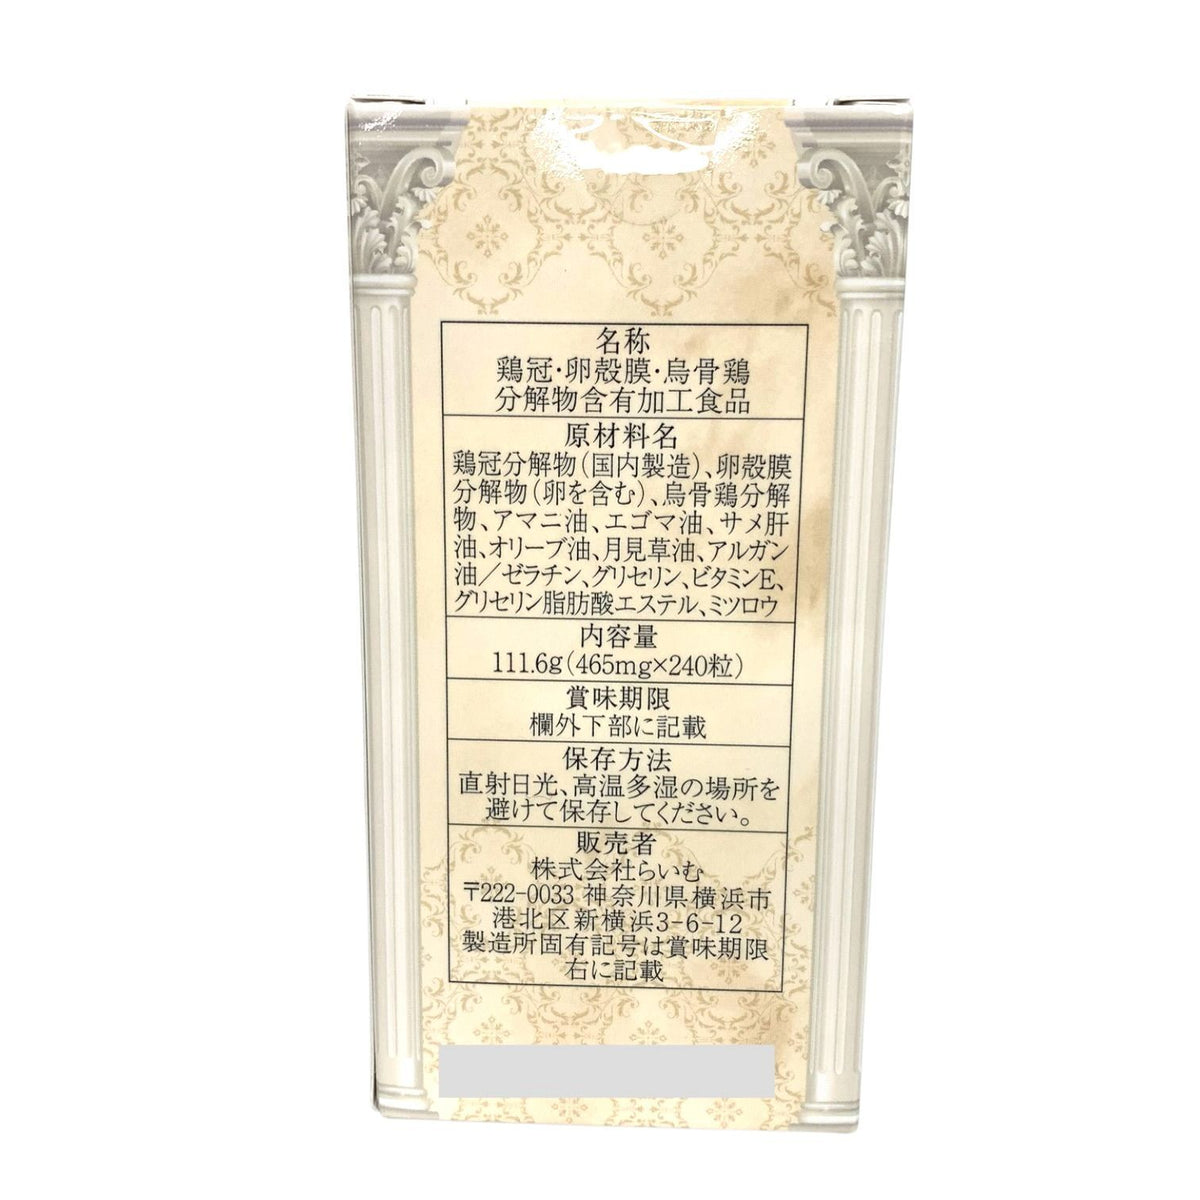 名称
鶏冠・卵殻膜・烏骨鶏
分解物含有加工食品
原材料名
鶏冠分解物（国内製造）、卵殻膜
分解物（卵を含む）、烏骨鶏分解
物、アマニ油、エゴマ油、サメ肝
油、オリーブ油、月見草油、アルガン
油／ゼラチン、グリセリン、ビタミンE、
グリセリン脂肪酸エステル、ミツロウ
内容量
111.6g（465mg×240粒）
賞味期限
欄外下部に記載
保存方法
直射日光、高温多湿の場所を
避けて保存してください。
販売者
株式会社らいむ
〒222-0033 神奈川県横浜市
港北区新横浜3-6-12
製造所固有記号は賞味期限
右に記載